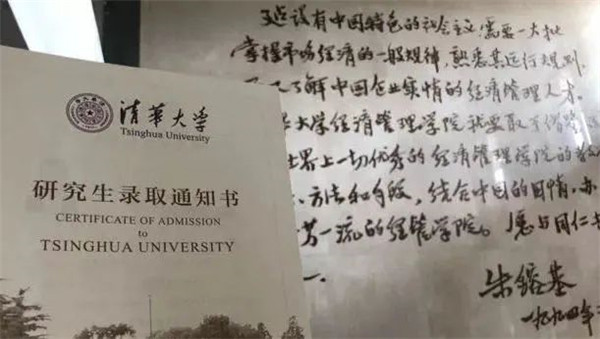 清华大学
Tsinghua University
研究生录取通知书
CERTIFICATE OF ADMISSION
to
TSINGHUA UNIVERSITY
建设有中国特色的社会主义,需要一大批
掌握市场经济的一般规律,熟悉其运行规则,
了解中国企业实情的经济管理人才。
大学经济管理学院就要敢于借鉴
世界上一切优秀的经济管理学院的
方法和手段,结合中国的国情,办
一流的经管学院。愿与同仁
朱镕基
一九九四年